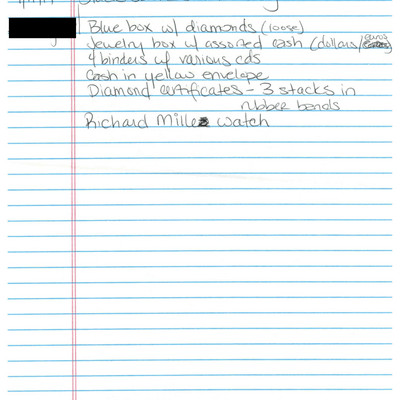 Blue box w/ diamonds (loose)
Jewelry box w/ assorted cash (dollars/euros
4 binders w/ various cds
Cash in yellow envelope
Diamond certificates - 3 stacks in
rubber bands
Richard Mille watch